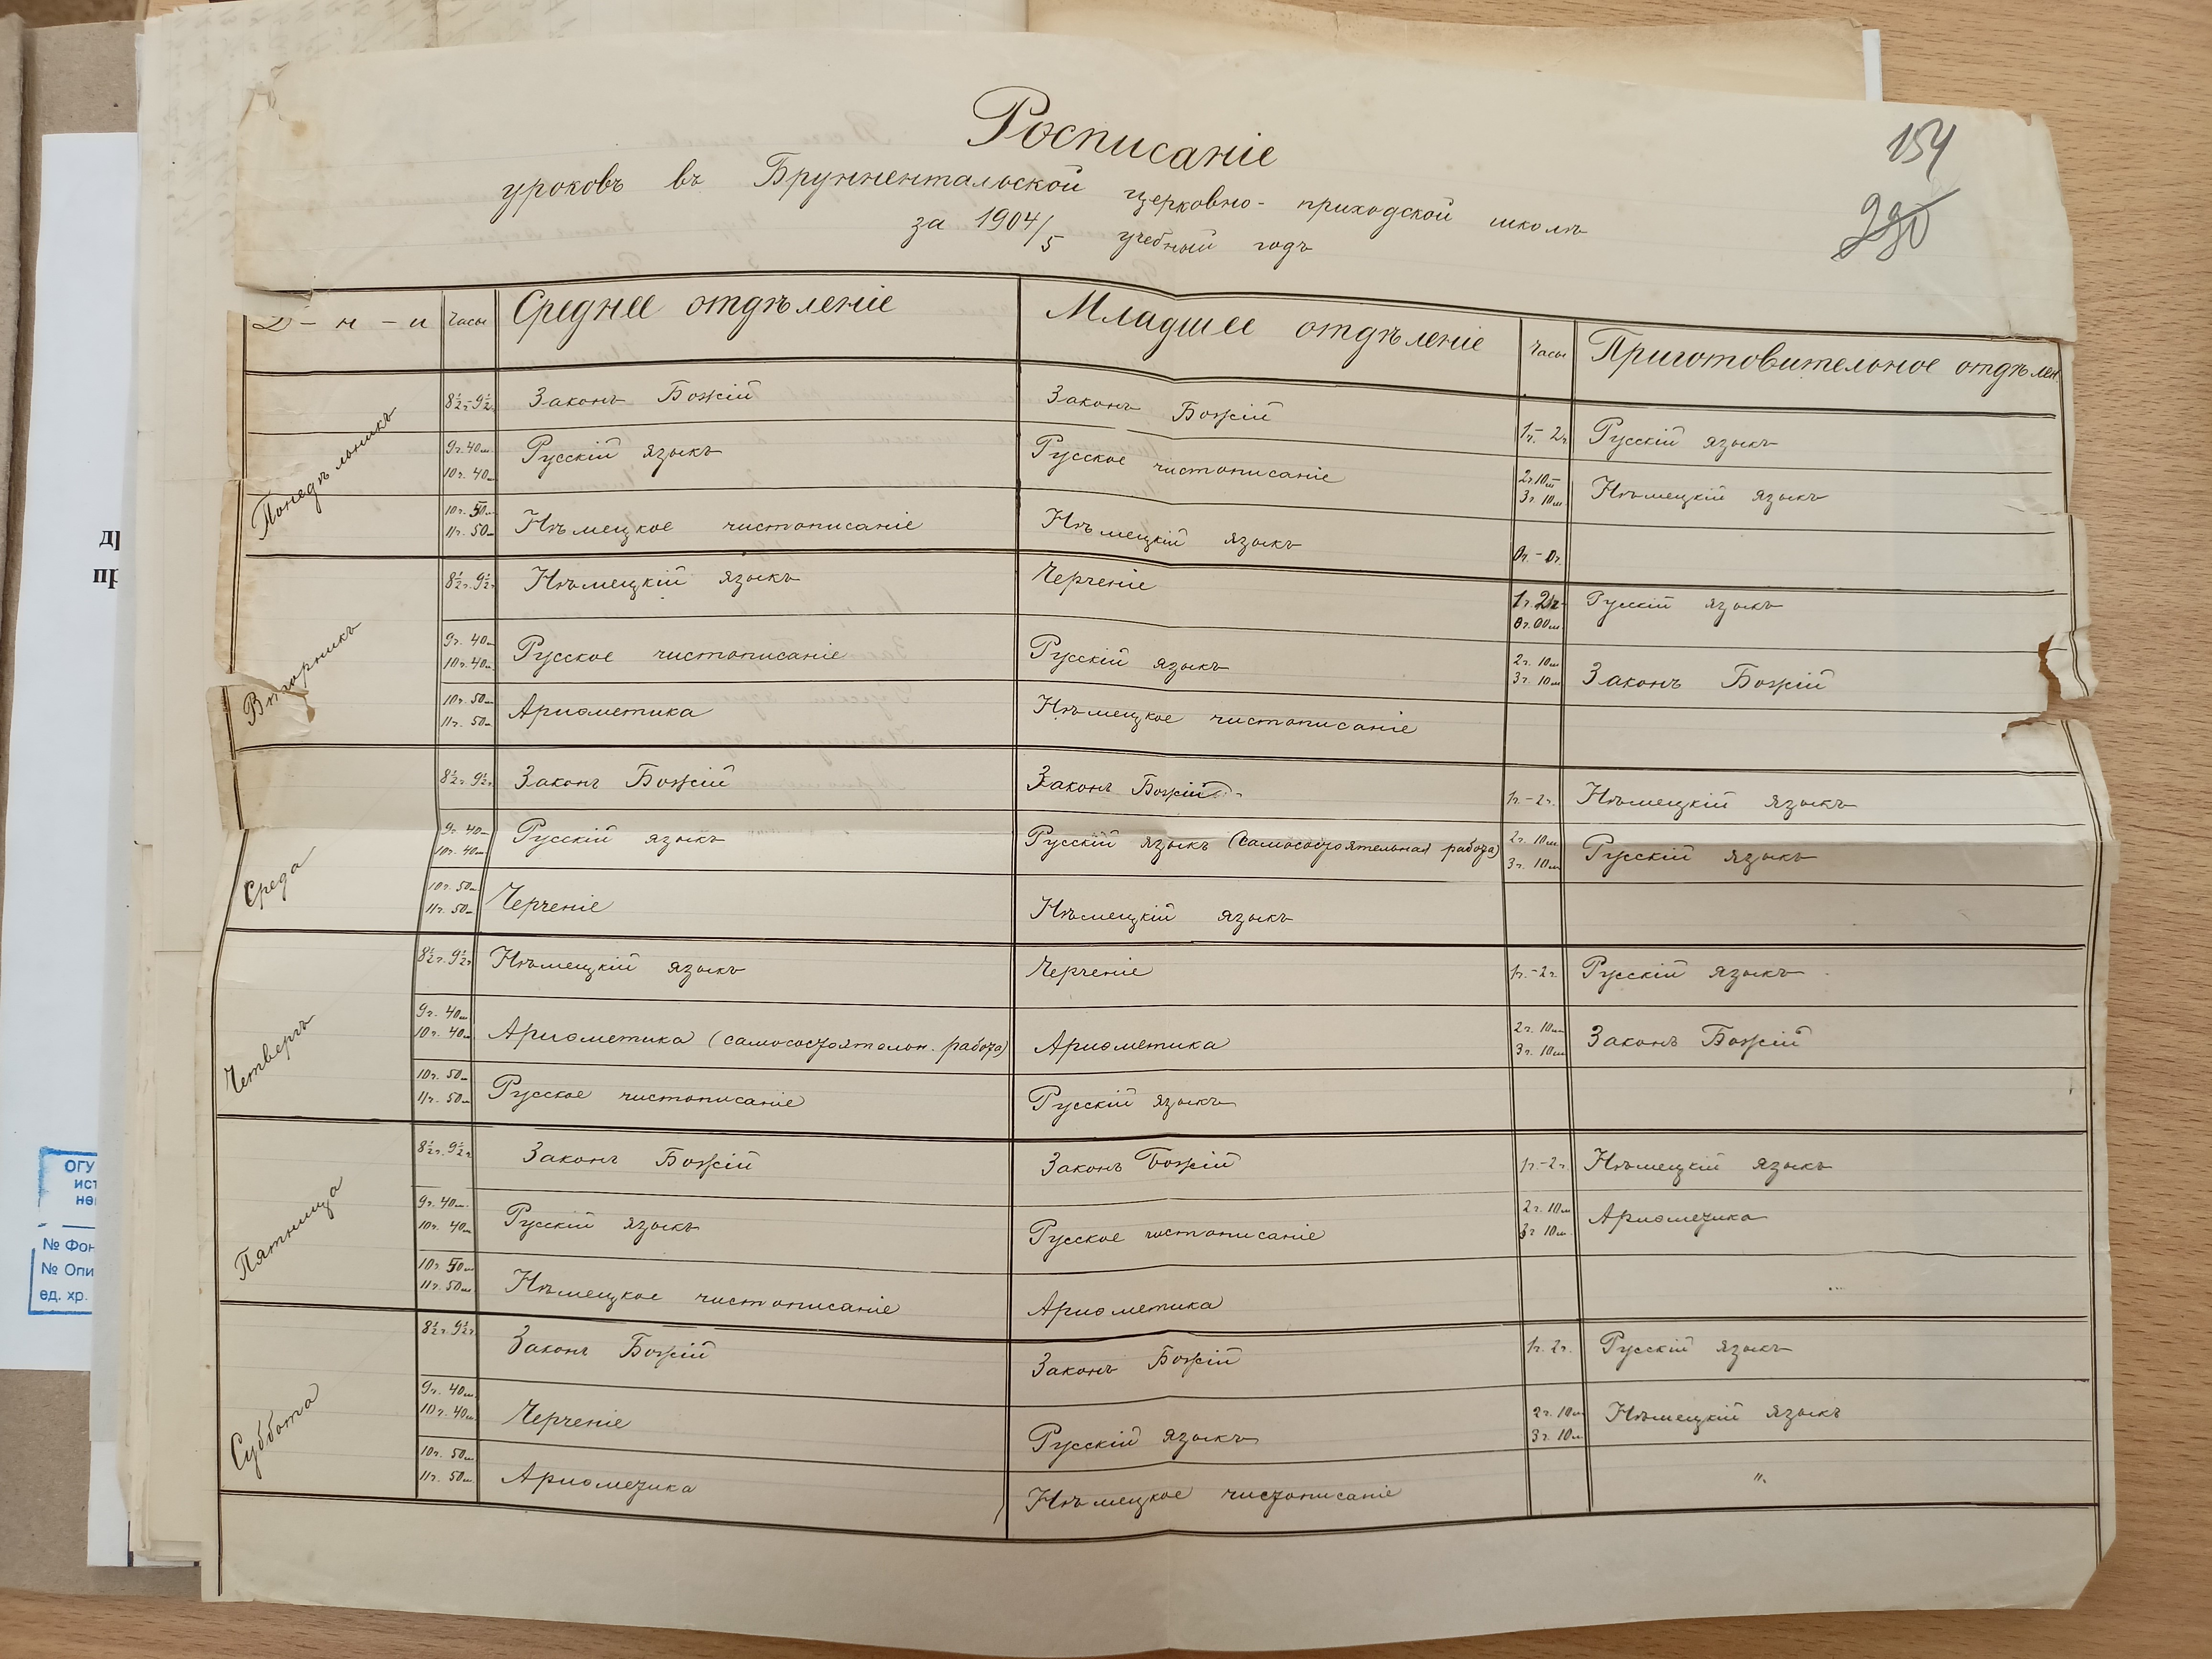 Росписаніе
уроковъ въ Брунентальской церковно-приходской школѣ
за 1904/5 учебный годъ
154
290
Д-н-и Часы Среднее отдѣленіе Младшее отдѣленіе Часы Приготовительное отдѣлен.
Понедѣльникъ
8½ч-9½ч. Законъ Божій Законъ Божій 1ч.-2ч. Русскій языкъ
9ч.40м. 10ч.40м. Русскій языкъ Русское чистописаніе 2ч.10м 3ч.10м Нѣмецкій языкъ
10ч.50м. 11ч.50м Нѣмецкое чистописаніе Нѣмецкій языкъ 0ч.-0ч.
Вторникъ
8½ч.9½ч. Нѣмецкій языкъ Черченіе 1ч.2ч. 0ч.00м Русскій языкъ
9ч.40м 10ч.40м. Русское чистописаніе Русскій языкъ 2ч.10м 3ч.10м Законъ Божій
10ч.50м 11ч.50м Ариѳметика Нѣмецкое чистописаніе
Среда
8½ч.9½ч. Законъ Божій Законъ Божій 1ч.-2ч. Нѣмецкій языкъ
9ч.40м 10ч.40м Русскій языкъ Русскій языкъ (самосостоятельная работа) 2ч.10м 3ч.10м Русскій языкъ
10ч.50м 11ч.50м Черченіе Нѣмецкій языкъ
Четвергъ
8½ч.9½ч Нѣмецкій языкъ Черченіе 1ч.-2ч. Русскій языкъ
9ч.40м 10ч.40м Ариѳметика (самосостоятельн. работа) Ариѳметика 2ч.10м 3ч.10м Законъ Божій
10ч.50м 11ч.50м Русское чистописаніе Русскій языкъ
Пятница
8½ч.9½ч Законъ Божій Законъ Божій 1ч.-2ч. Нѣмецкій языкъ
9ч.40м. 10ч.40м Русскій языкъ Русское чистописаніе 2ч.10м 3ч.10м Ариѳметика
10ч.50м 11ч.50м Нѣмецкое чистописаніе Ариѳметика
Суббота
8½ч.9½ч Законъ Божій Законъ Божій 1ч.2ч. Русскій языкъ
9ч.40м. 10ч.40м Черченіе Русскій языкъ 2ч.10м 3ч.10м Нѣмецкій языкъ
10ч.50м 11ч.50м Ариѳметика Нѣмецкое чистописаніе "
др
пр
ОГУ
ист
не
№ Фон
№ Опи
ед. хр.